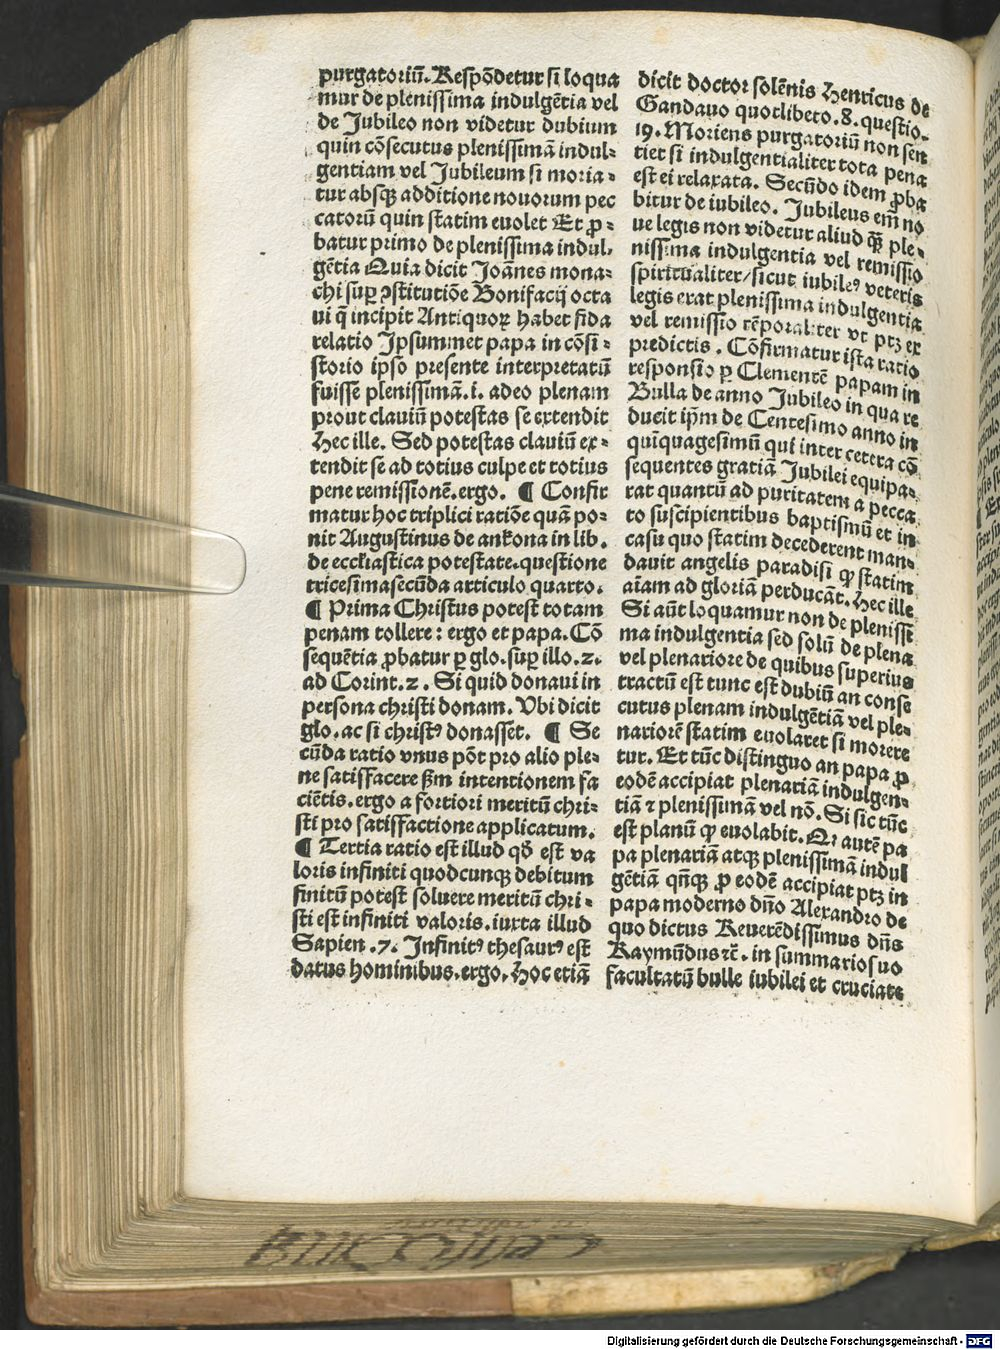 purgatoriū. Respōdetur si loqua
mur de plenissima indulgētia vel
de Jubileo non videtur dubium
quin cōsecutus plenissimā indul⸗
gentiam vel Jubileum si moria⸗
tur absqꝫ additione nouorum pec
catorū quin statim euolet Et ꝓ⸗
batur primo de plenissima indul⸗
gētia Quia dicit Joānes mona⸗
chi suꝑ ꝯstitutiōe Bonifacij octa
ui q̄ incipit Antiquoꝝ habet fida
relatio Ipsummet papa in cōsi⸗
storio ipso presente interpretatū
fuisse plenissimā.i. adeo plenam
prout clauiū potestas se extendit
Hec ille. Sed potestas clauiū ex⸗
tendit se ad totius culpe et totius
pene remissionē.ergo. ¶ Confir
matur hoc triplici ratiōe quā po⸗
nit Augustinus de ankona in lib.
de eccliastica potestate.questione
tricesimasecūda articulo quarto.
¶ Prima Christus potest totam
penam tollere: ergo et papa. Cō
sequētia ꝓbatur ꝑ glo. suꝑ illo.2.
ad Corint.2. Si quid donaui in
persona christi donam. Vbi dicit
glo. ac si christꝰ donasset. ¶ Se
cūda ratio vnus pōt pro alio ple⸗
ne satisfacere ẜm intentionem fa
ciētis.ergo a fortiori meritū chri⸗
sti pro satisfactione applicatum.
¶ Tertia ratio est illud qđ est va
loris infiniti quodcunqꝫ debitum
finitū potest soluere meritū chri⸗
sti est infiniti valoris.iuxta illud
Sapien.7. Infinitꝰ thesaurꝰ est
datus hominibus.ergo. Hoc etiā
dicit doctor solēnis Henricus de
Gandauo quotlibeto.8.questio⸗
19. Moriens purgatoriū non sen
tiet si indulgentialiter tota pena
est ei relaxata. Secūdo idem ꝓba
bitur de iubileo. Jubileus em̄ no
ue legis non videtur aliud qꝫ̄ ple⸗
nissima indulgentia vel remissio
spiritualiter/sicut iubileꝰ veteris
legis erat plenissima indulgentia
vel remissio tēporaliter vt ptꝫ ex
predictis. Cōfirmatur ista ratio
responsio ꝑ Clementē papam in
Bulla de anno Jubileo in qua re
ducit ip̄m de Centesimo anno in
quīquagesimū qui inter cetera cō
sequentes gratiā Jubilei equipa⸗
rat quantū ad puritatem a pecca
to suscipientibus baptismū et in
casu quo statim decederent man⸗
dauit angelis paradisi ꝙ statim
aīam ad gloriā perducāt. Hec ille
Si aūt loquamur non de plenissi
ma indulgentia sed solū de plena
vel plenariore de quibus superius
tractū est tunc est dubiū an conse
cutus plenam indulgētiā vel ple⸗
nariorē statim euolaret si morere
tur. Et tūc distinguo an papa ꝓ
eodē accipiat plenariā indulgen⸗
tiā ⁊ plenissimā vel nō. Si sic tūc
est planū ꝙ euolabit. Qꝛ autē pa
pa plenariā atqꝫ plenissimā indul
gētiā qn̄qꝫ ꝓ eodē accipiat ptꝫ in
papa moderno dño Alexandro de
quo dictus Reuerēdissimus dn̄s
Raymūdus ⁊c̄. in summario suo
facultatū bulle iubilei et cruciate
Digitalisierung gefördert durch die Deutsche Forschungsgemeinschaft - DFG